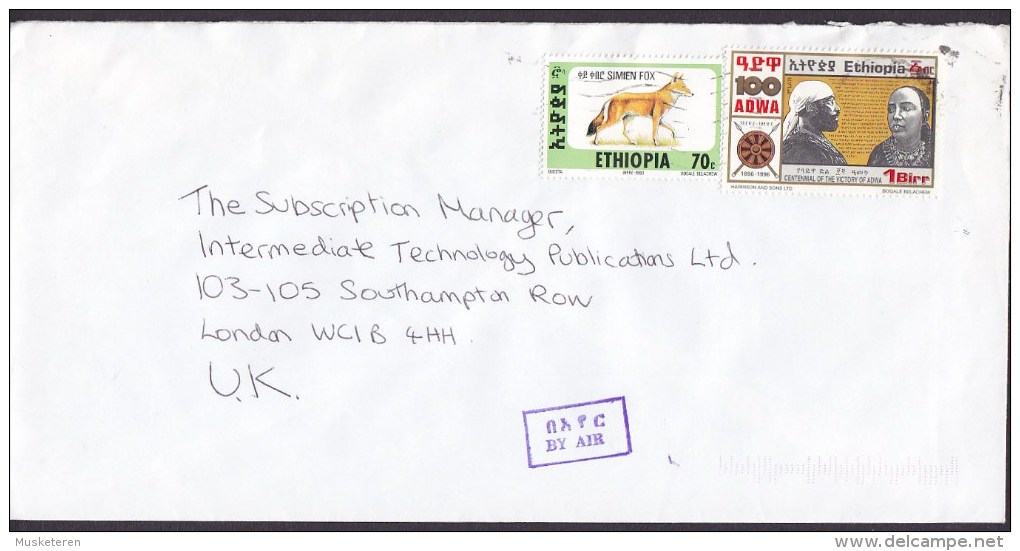 ቀይ ቀበሮ SIMIEN FOX
ኢትዮጵያ
ETHIOPIA 70c
BOGALE BELACHEW
ዓድዋ
100
ADWA
1896-1996
ኢትዮጵያ Ethiopia
የዓድዋ ድል ፻ኛ ዓመት
CENTENNIAL OF THE VICTORY OF ADWA
1Birr
HARRISON AND SONS LTD
BOGALE BELACHEW
The Subscription Manager,
Intermediate Technology Publications Ltd.
103-105 Southampton Row
London WC1B 4HH.
U.K.
በአየር
BY AIR
Musketeren
delcampe.net